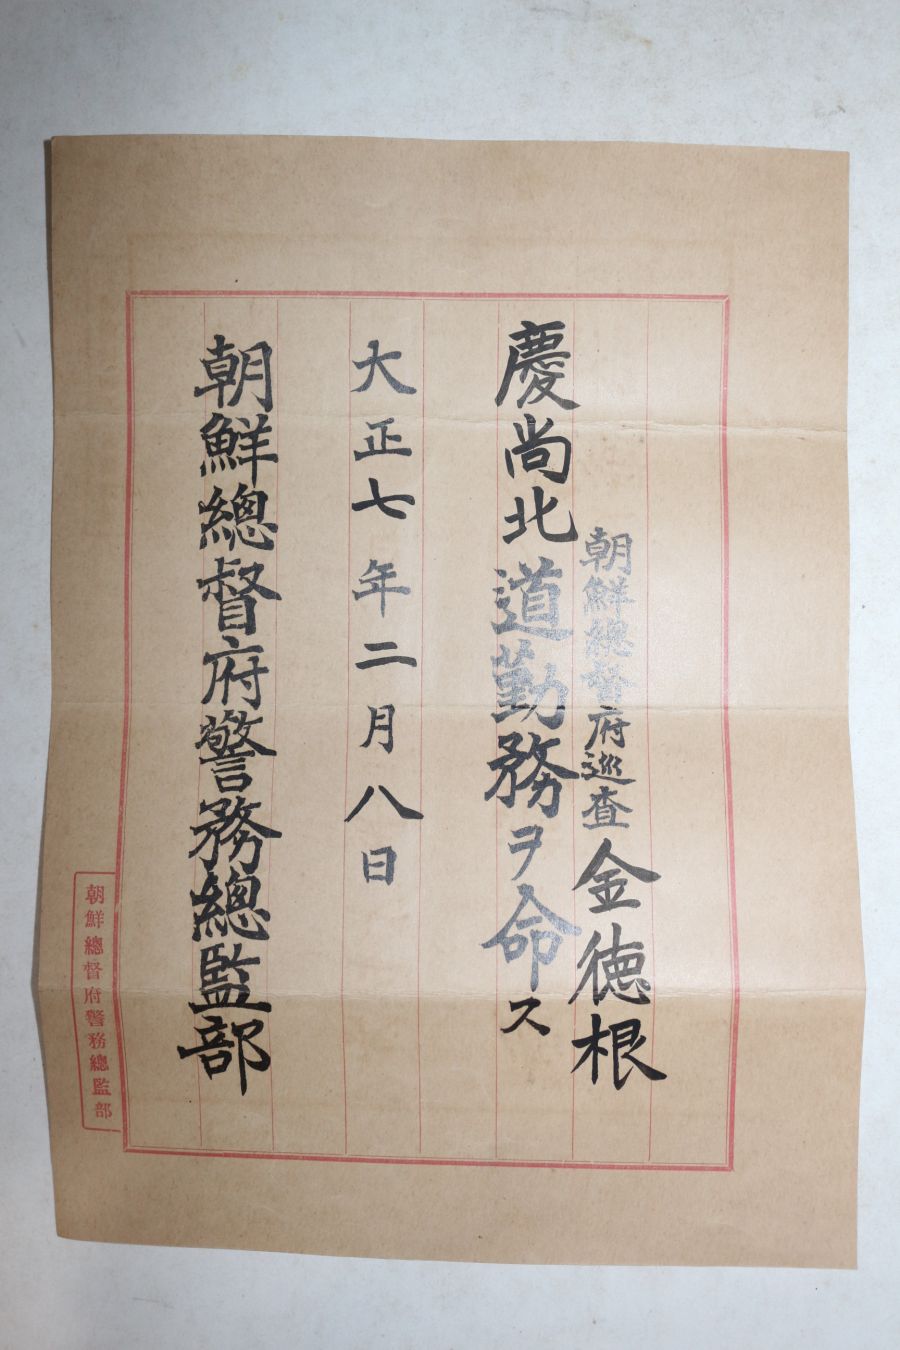 朝鮮總督府巡查 金徳根
慶尚北道勤務ヲ命ス
大正七年二月八日
朝鮮總督府警務總監部
朝鮮總督府警務總監部